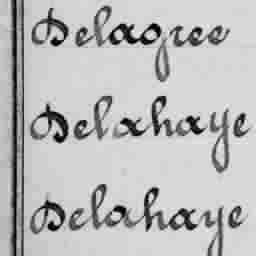 Delagree
Delahaye
Delahaye